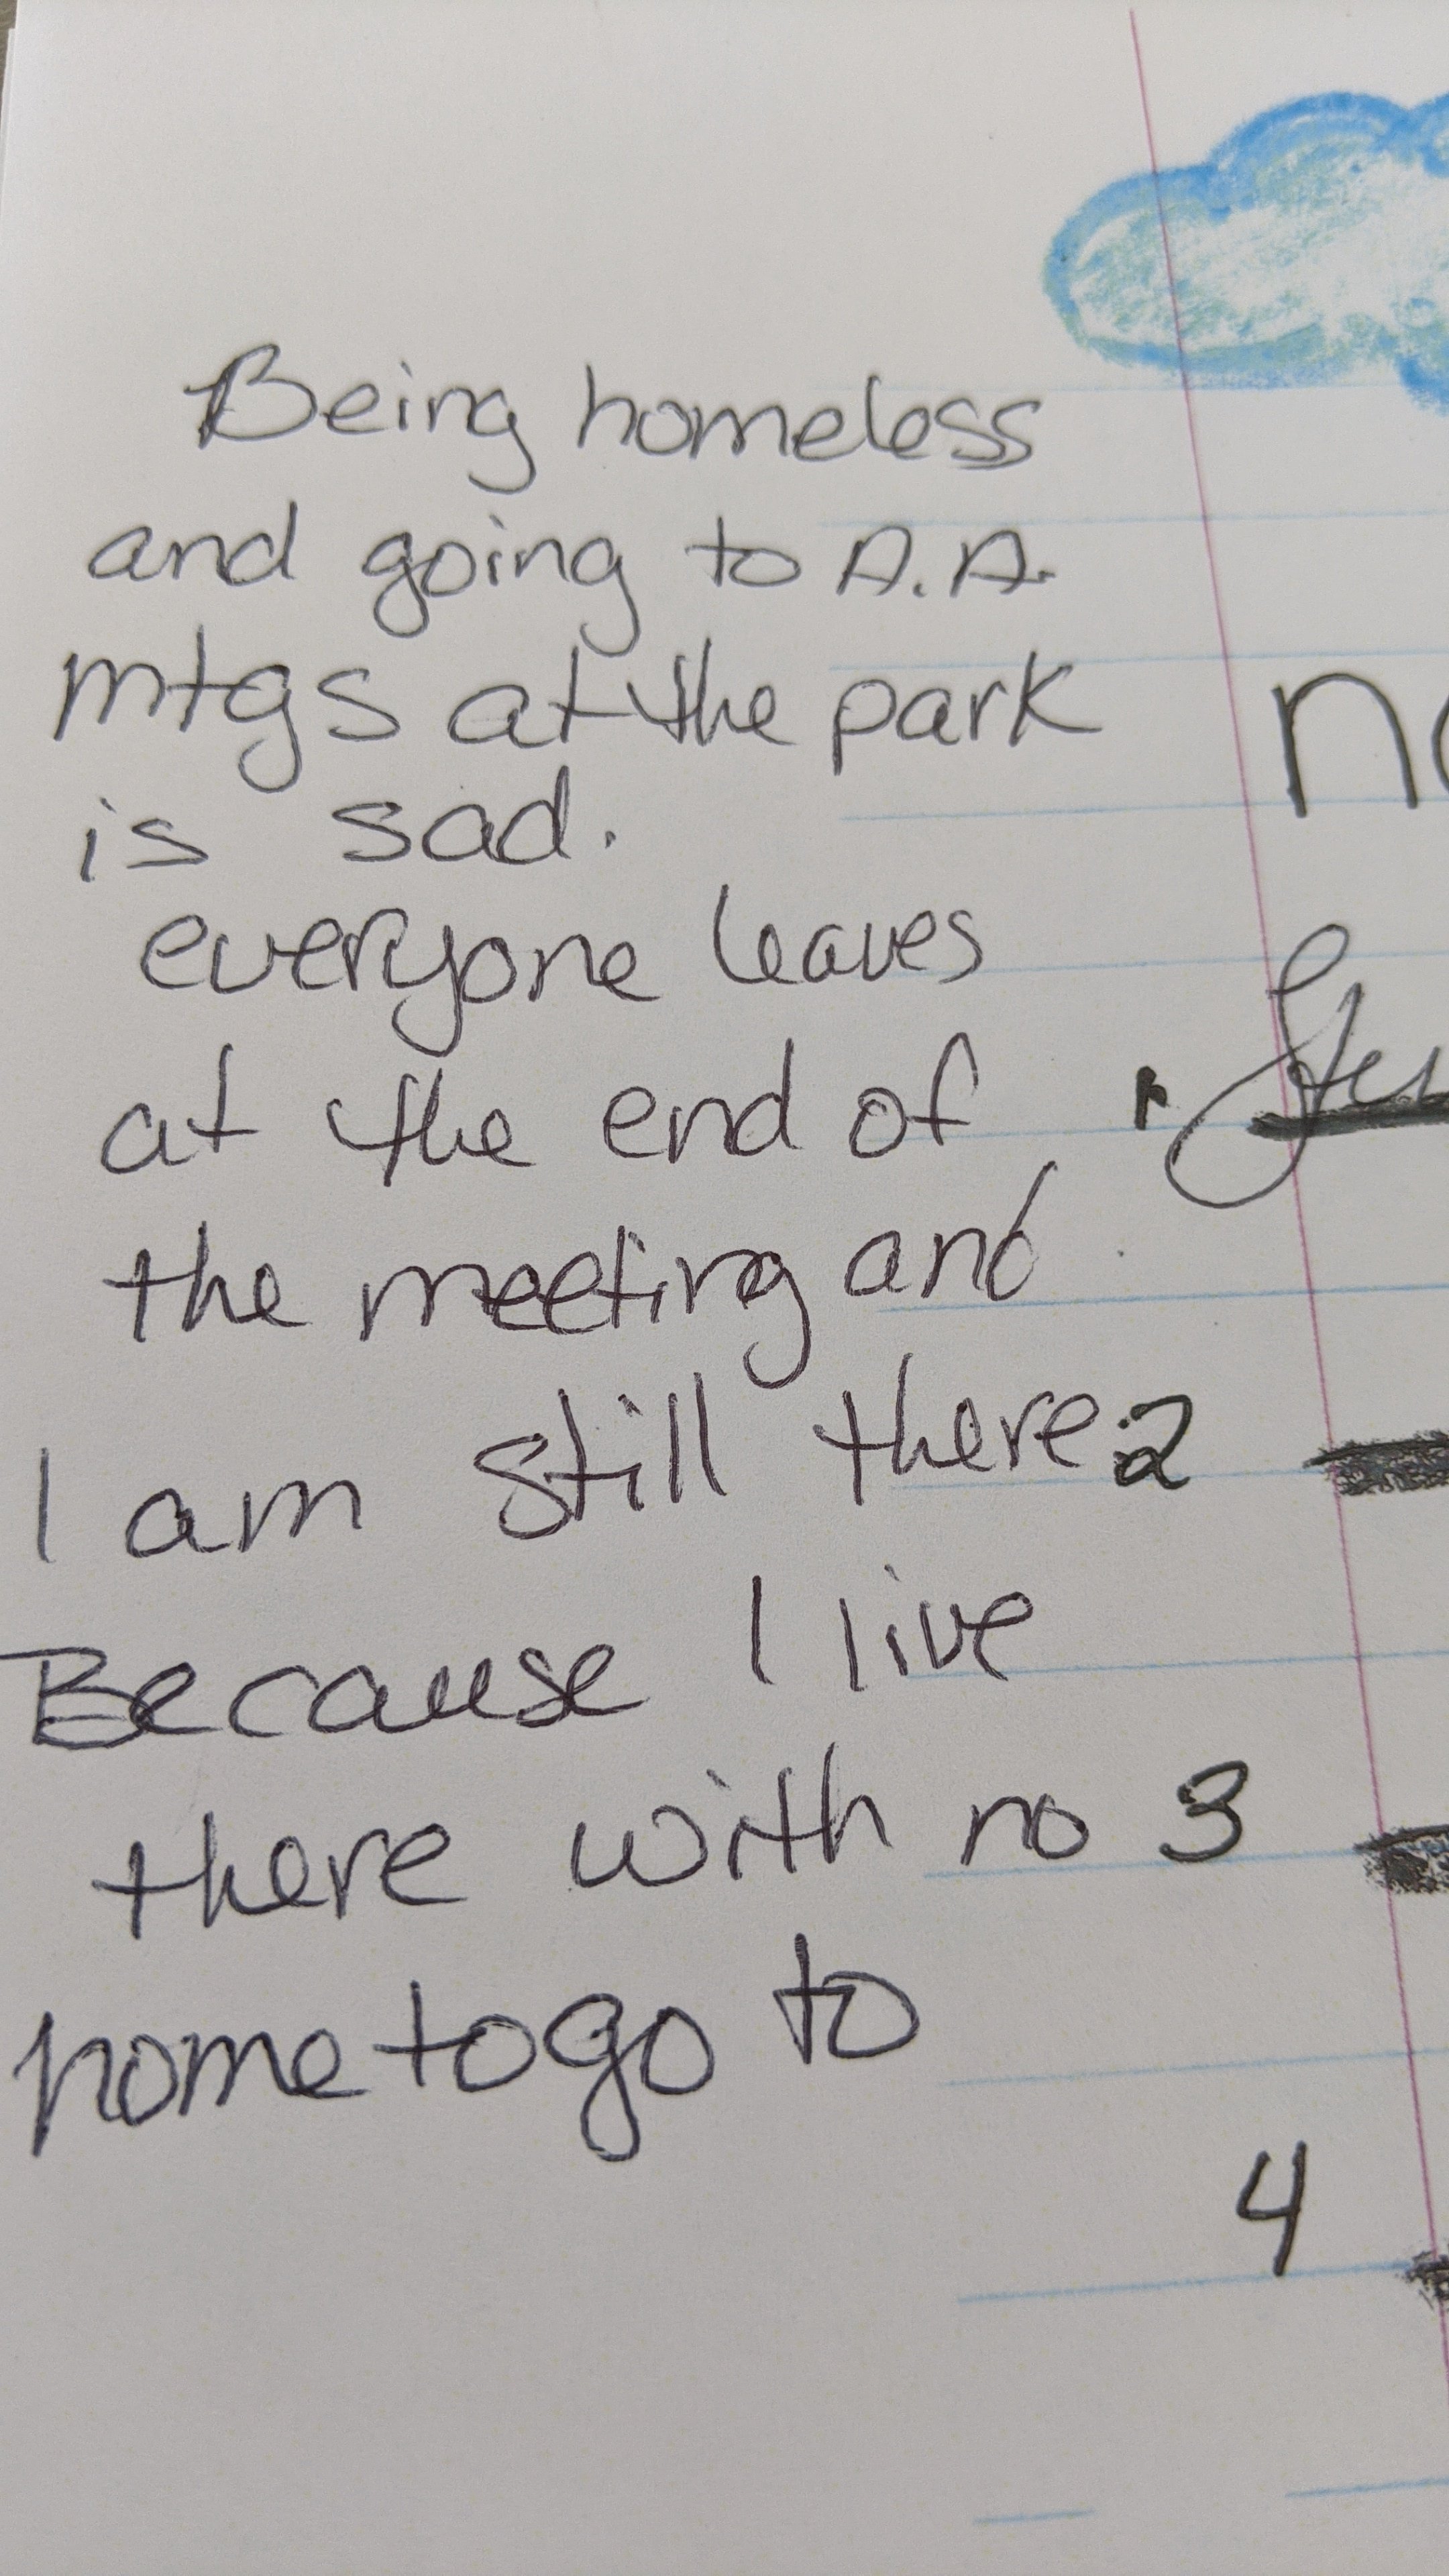 Being homeless
and going to A.A.
mtgs at the park
is sad.
everyone leaves
at the end of
the meeting and
I am still there
Because I live
there with no
home to go to
2
3
4